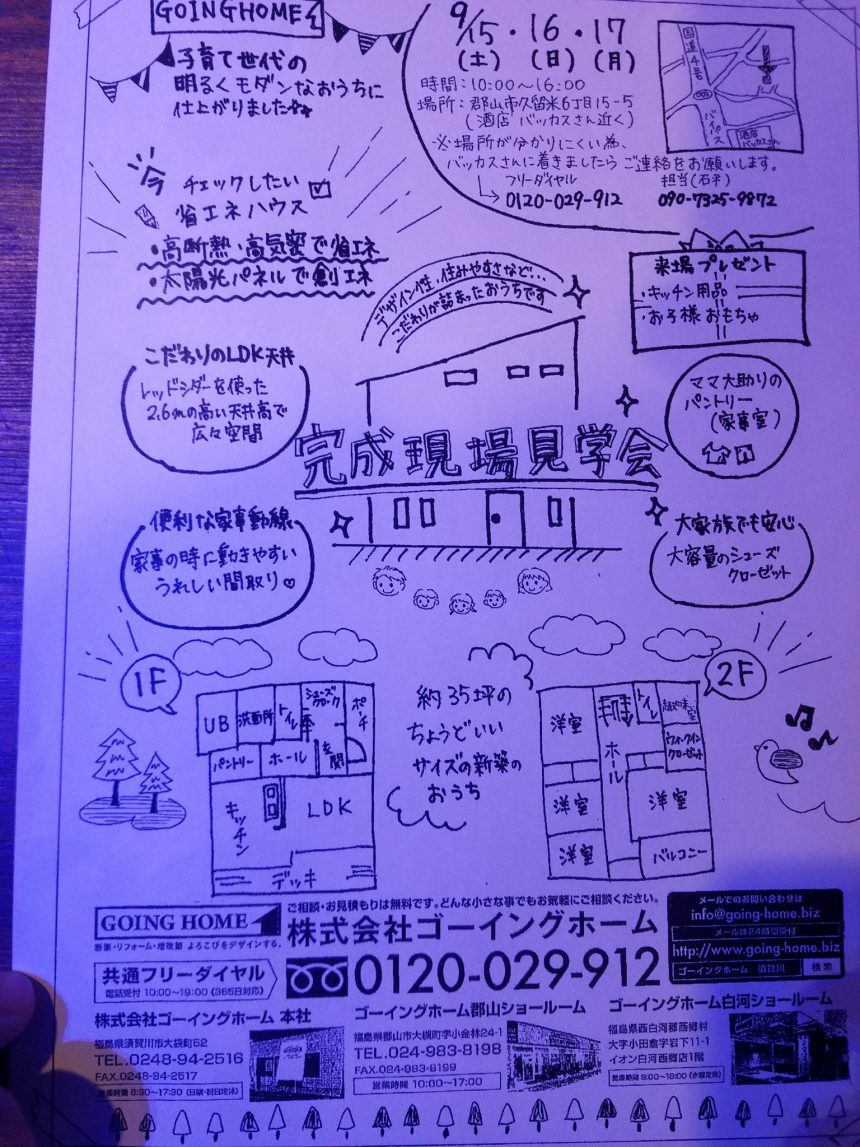 GOING HOME
子育て世代の
明るくモダンなおうちに
仕上がりました
9/15・16・17
(土) (日) (月)
時間:10:00~16:00
場所:郡山市久留米6丁目15-5
(酒店 バッカスさん近く)
※場所が分かりにくい為、
バッカスさんに着きましたら ご連絡をお願いします。
フリーダイヤル
0120-029-912
担当(石平)
090-7325-9872
国道4号
バイパス
酒店
バッカスさん
今 チェックしたい
省エネハウス
・高断熱・高気密で省エネ
・太陽光パネルで創エネ
デザイン性、住みやすさなど…
こだわりが詰まったおうちです
来場プレゼント
・キッチン用品
・お子様おもちゃ
こだわりのLDK天井
レッドシダーを使った
2.6mの高い天井高で
広々空間
ママ大助りの
パントリー
(家事室)
完成現場見学会
便利な家事動線
家事の時に動きやすい
うれしい間取り♡
大家族でも安心
大容量のシューズ
クローゼット
1F
UB
洗面所
トイレ
シューズ
クローク
ポーチ
パントリー
ホール
玄関
キッチン
LDK
デッキ
約35坪の
ちょうどいい
サイズの新築の
おうち
2F
洋室
トイレ
ホール
ウォークイン
クローゼット
洋室
洋室
洋室
バルコニー
GOING HOME
新築・リフォーム・増改築 よろこびをデザインする。
ご相談・お見積もりは無料です。どんな小さな事でもお気軽にご相談ください。
株式会社ゴーイングホーム
メールでのお問い合わせは
info@going-home.biz
メールは24時間受付
http://www.going-home.biz
ゴーイングホーム 須賀川 検索
共通フリーダイヤル
電話受付 10:00~19:00《365日対応》
0120-029-912
株式会社ゴーイングホーム 本社
福島県須賀川市大袋町52
TEL.0248-94-2516
FAX.0248-94-2517
営業時間 8:30~17:30 (日曜・祝日定休)
ゴーイングホーム郡山ショールーム
福島県郡山市大槻町字小金林24-1
TEL.024-983-8198
FAX.024-983-8199
営業時間 10:00~17:00
ゴーイングホーム白河ショールーム
福島県西白河郡西郷村
大字小田倉字岩下11-1
イオン白河西郷店1階
営業時間 9:00~18:00 (水曜定休)